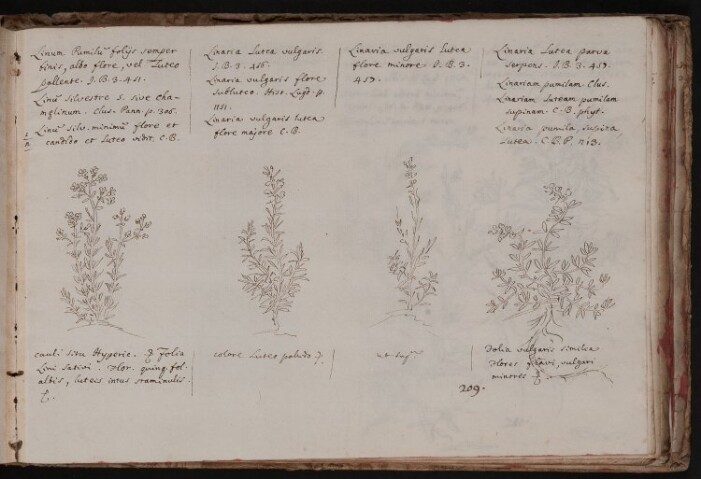 Linum Pumilũ folijs semper
finis, albo flore, vel Luteo
pallente. J.B. 3. 451.
Linũ silvestre 5. sive Cha-
mælinum. Clus. Pann. p. 306.
Linũ silv. minimũ flore et
candido et Luteo vidit. C.B.
Linaria Lutea vulgaris.
J.B. 3. 456.
Linaria vulgaris flore
subluteo. Hist. Lugd. p.
1151.
Linaria vulgaris lutea
flore majore C.B.
Linaria vulgaris Lutea
flore minore. J.B. 3.
457.
Linaria Lutea parva
serpens. J.B. 3. 457.
Linariam pumilam. Clus.
Linariam Luteam pumilam
supinam. C.B. phyt.
Linaria pumila, supina,
Lutea. C.B.P. 213.
cauli situ Hyperic. folia
Lini sativi. Flor. quinq. fol.
albis, luteis intus staminulis.
colore Luteo palido
ut sup.
Folia vulgaris similia
Flores flavi, vulgari
minores
209.